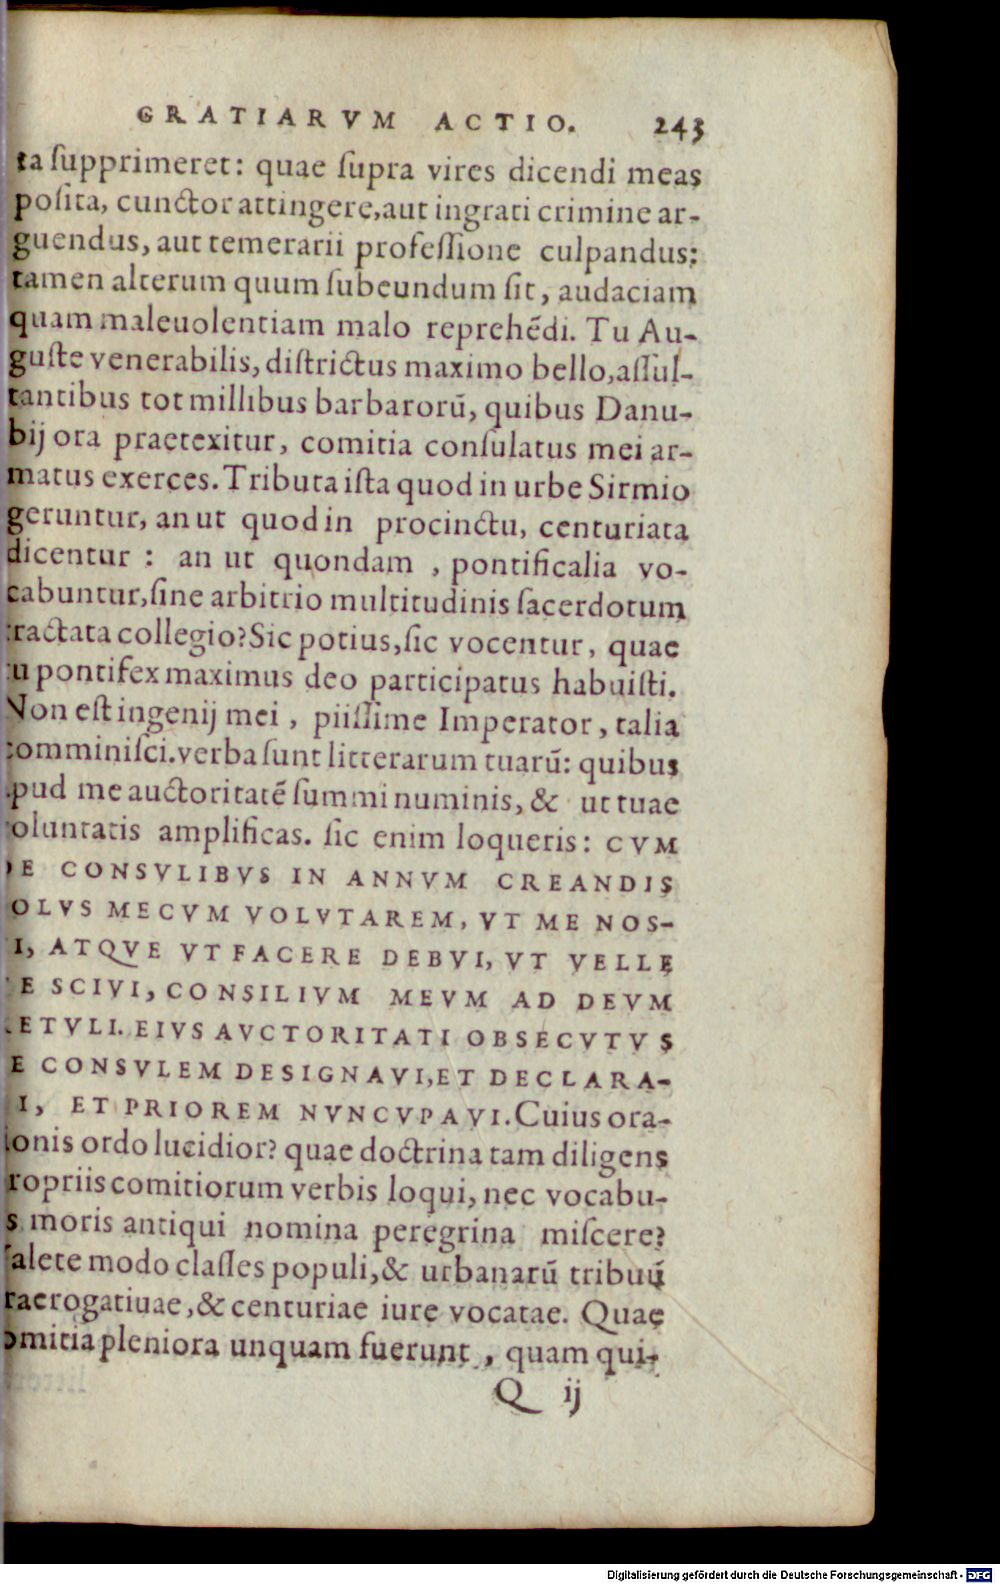 GRATIARVM ACTIO. 243
ta ſupprimeret: quae ſupra vires dicendi meas
poſita, cunctor attingere, aut ingrati crimine ar-
guendus, aut temerarii profeſſione culpandus:
tamen alterum quum ſubeundum ſit, audaciam
quam maleuolentiam malo reprehēdi. Tu Au-
guſte venerabilis, diſtrictus maximo bello, aſſul-
tantibus tot millibus barbarorū, quibus Danu-
bij ora praetexitur, comitia conſulatus mei ar-
matus exerces. Tributa iſta quod in urbe Sirmio
geruntur, an ut quod in procinctu, centuriata
dicentur : an ut quondam , pontificalia vo-
cabuntur, ſine arbitrio multitudinis ſacerdotum
tractata collegio? Sic potius, ſic vocentur, quae
tu pontifex maximus deo participatus habuiſti.
Non eſt ingenij mei , piiſſime Imperator, talia
comminiſci. verba ſunt litterarum tuarū: quibus
apud me auctoritatē ſummi numinis, & ut tuae
voluntatis amplificas. ſic enim loqueris: CVM
DE CONSVLIBVS IN ANNVM CREANDIS
OLVS MECVM VOLVTAREM, VT ME NOS-
I, ATQVE VT FACERE DEBVI, VT VELLE
E SCIVI, CONSILIVM MEVM AD DEVM
ETVLI. EIVS AVCTORITATI OBSECVTVS
E CONSVLEM DESIGNAVI, ET DECLARA-
I, ET PRIOREM NVNCVPAVI. Cuius ora-
ionis ordo lucidior? quae doctrina tam diligens
ropriis comitiorum verbis loqui, nec vocabu-
s moris antiqui nomina peregrina miſcere?
alete modo claſſes populi, & urbanarū tribuū
raerogatiuae, & centuriae iure vocatae. Quae
omitia pleniora unquam fuerunt , quam qui-
Q ij
Digitalisierung gefördert durch die Deutsche Forschungsgemeinschaft - DFG